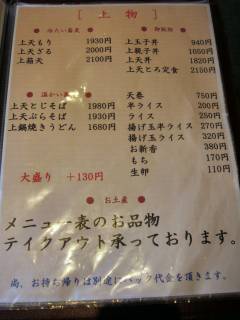 ［ 上 物 ］
● 冷たい蕎麦 ●
上天もり 1930円
上天ざる 2000円
上箱天 2100円
● 温かい蕎麦 ●
上天とじそば 1980円
上天ぷらそば 1900円
上鍋焼きうどん 1680円
大盛り +130円
● 御飯物 ●
上玉子丼 940円
上親子丼 1050円
上天丼 1820円
上天とろ定食 2150円
天巻 750円
半ライス 200円
ライス 250円
揚げ玉半ライス 270円
揚げ玉ライス 320円
お新香 380円
もち 170円
生卵 110円
● お土産 ●
メニュー表のお品物
テイクアウト承っております。
尚、お持ち帰りは別途にパック代金を頂きます。